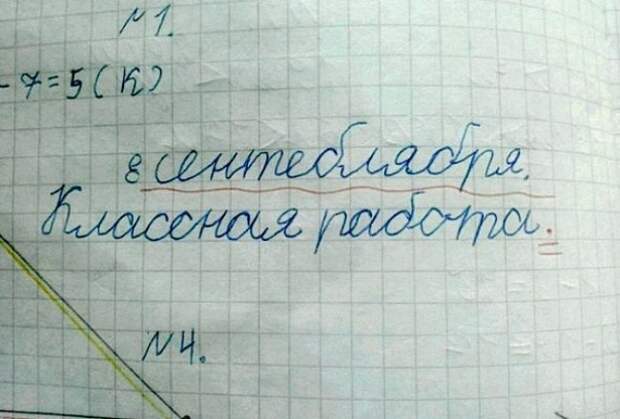 №1.
- 7 = 5 (К)
8 сентеблября.
Классная работа.
№4.